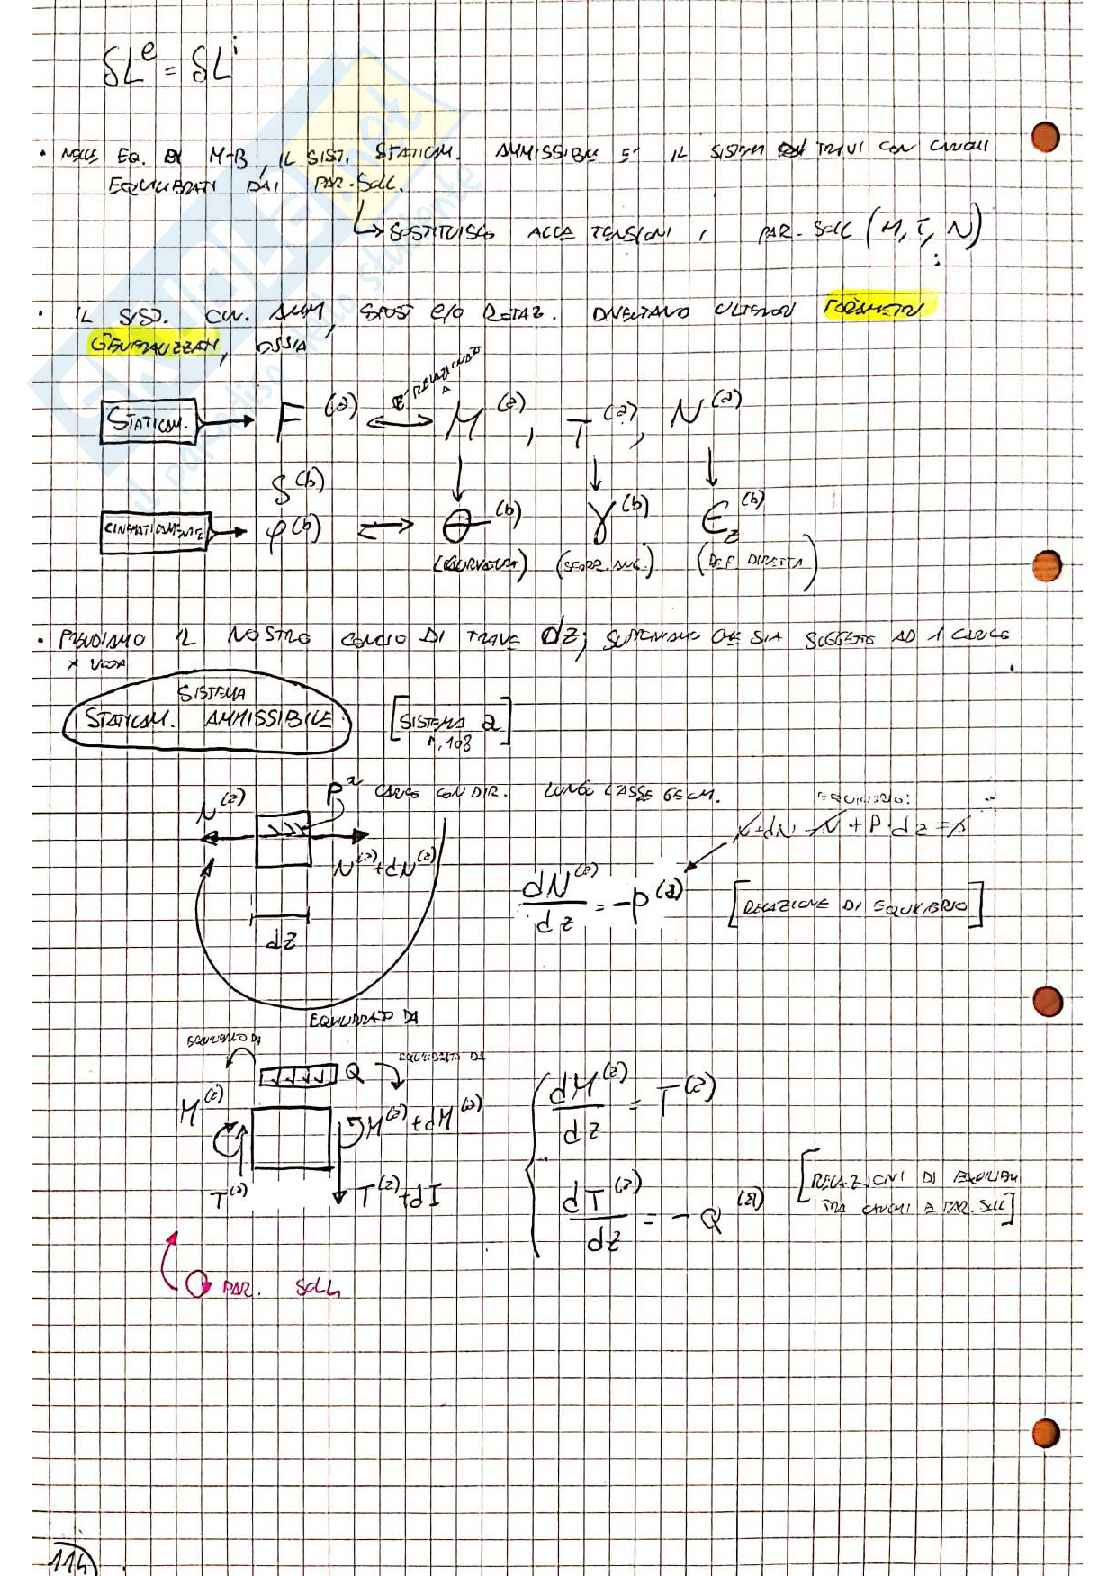 δL^e = δL^i
• NELLE EQ. DI M-B, IL SIST. STATICAM. AMMISSIBILE E' IL SISTEMA TRAVI CON CARICHI
EQUILIBRATI DAI PAR. SOLL.
↳ SOSTITUISCO ALLE TENSIONI I PAR. SOLL (M, T, N)
• IL SIST. CIN. AMM, SPOST E/O ROTAZ. DIVENTANO ULTERIORI PARAMETRI
GENERALIZZATI, OSSIA
STATICAM. → F^(a) ↔ M^(a), T^(a), N^(a)
δ^(b)
CINEMATICAMENTE → φ^(b) ↔ θ^(b) γ^(b) Є_z^(b)
(CURVATURA) (SCORR. ANG.) (DEF. DIRETTA)
• PRENDIAMO IL NOSTRO CONCIO DI TRAVE dz; SUPPONIAMO CHE SIA SOGGETTO AD 1 CARICO
× VOLTA
SISTEMA
STATICAM. AMMISSIBILE
[SISTEMA a]
N^(a) P^a CARICO CON DIR. LUNGO L'ASSE GEOM.
EQUILIBRIO:
N+dN - N + P·dz = 0
N^(a)+dN^(a)
dN^(a)/dz = -P^(a) [RELAZIONE DI EQUILIBRIO]
dz
EQUILIBRATO DA
EQUILIBRATO DA Q EQUILIBRATO DA
M^(a) M^(a)+dM^(a)
T^(a) T^(a)+dT
dM^(a)/dz = T^(a)
dT^(a)/dz = -Q^(a)
[RELAZIONI DI EQUILIBRI
TRA CARICHI E PAR. SOLL]
PAR. SOLL